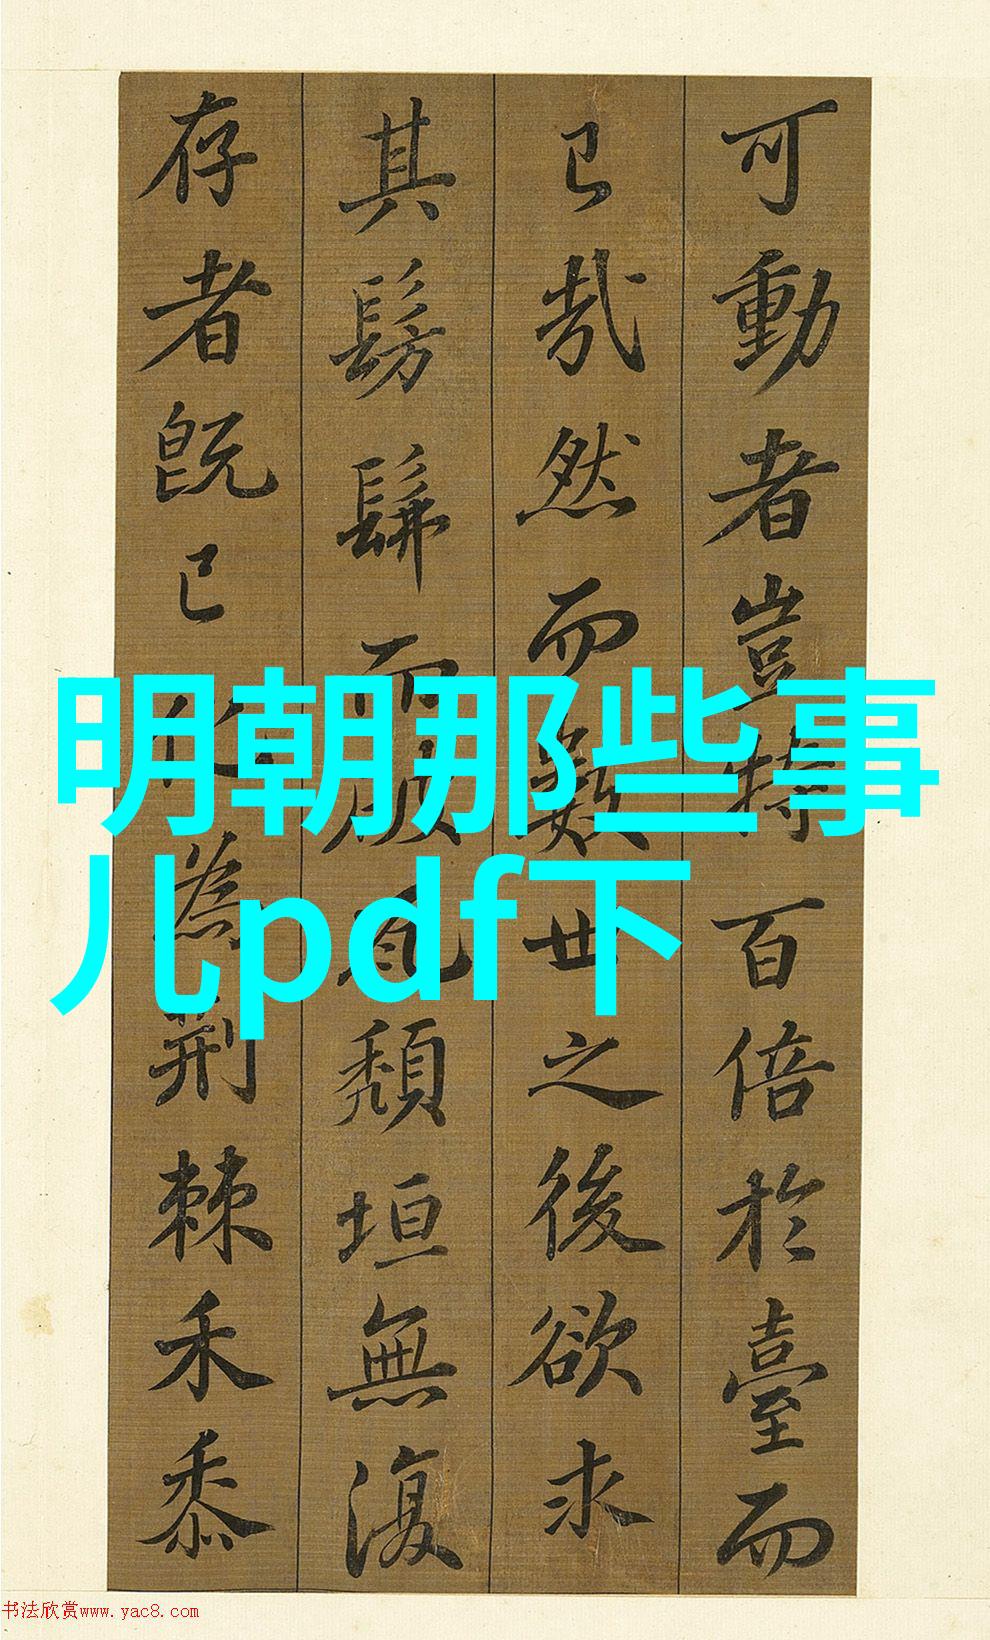 可動者豈特百倍於臺而
已哉然而數世之後欲求
其髣髴而破瓦頹垣無復
存者既已化為荊棘禾黍
明朝那些事
儿pdf下
书法欣赏www.yac8.com